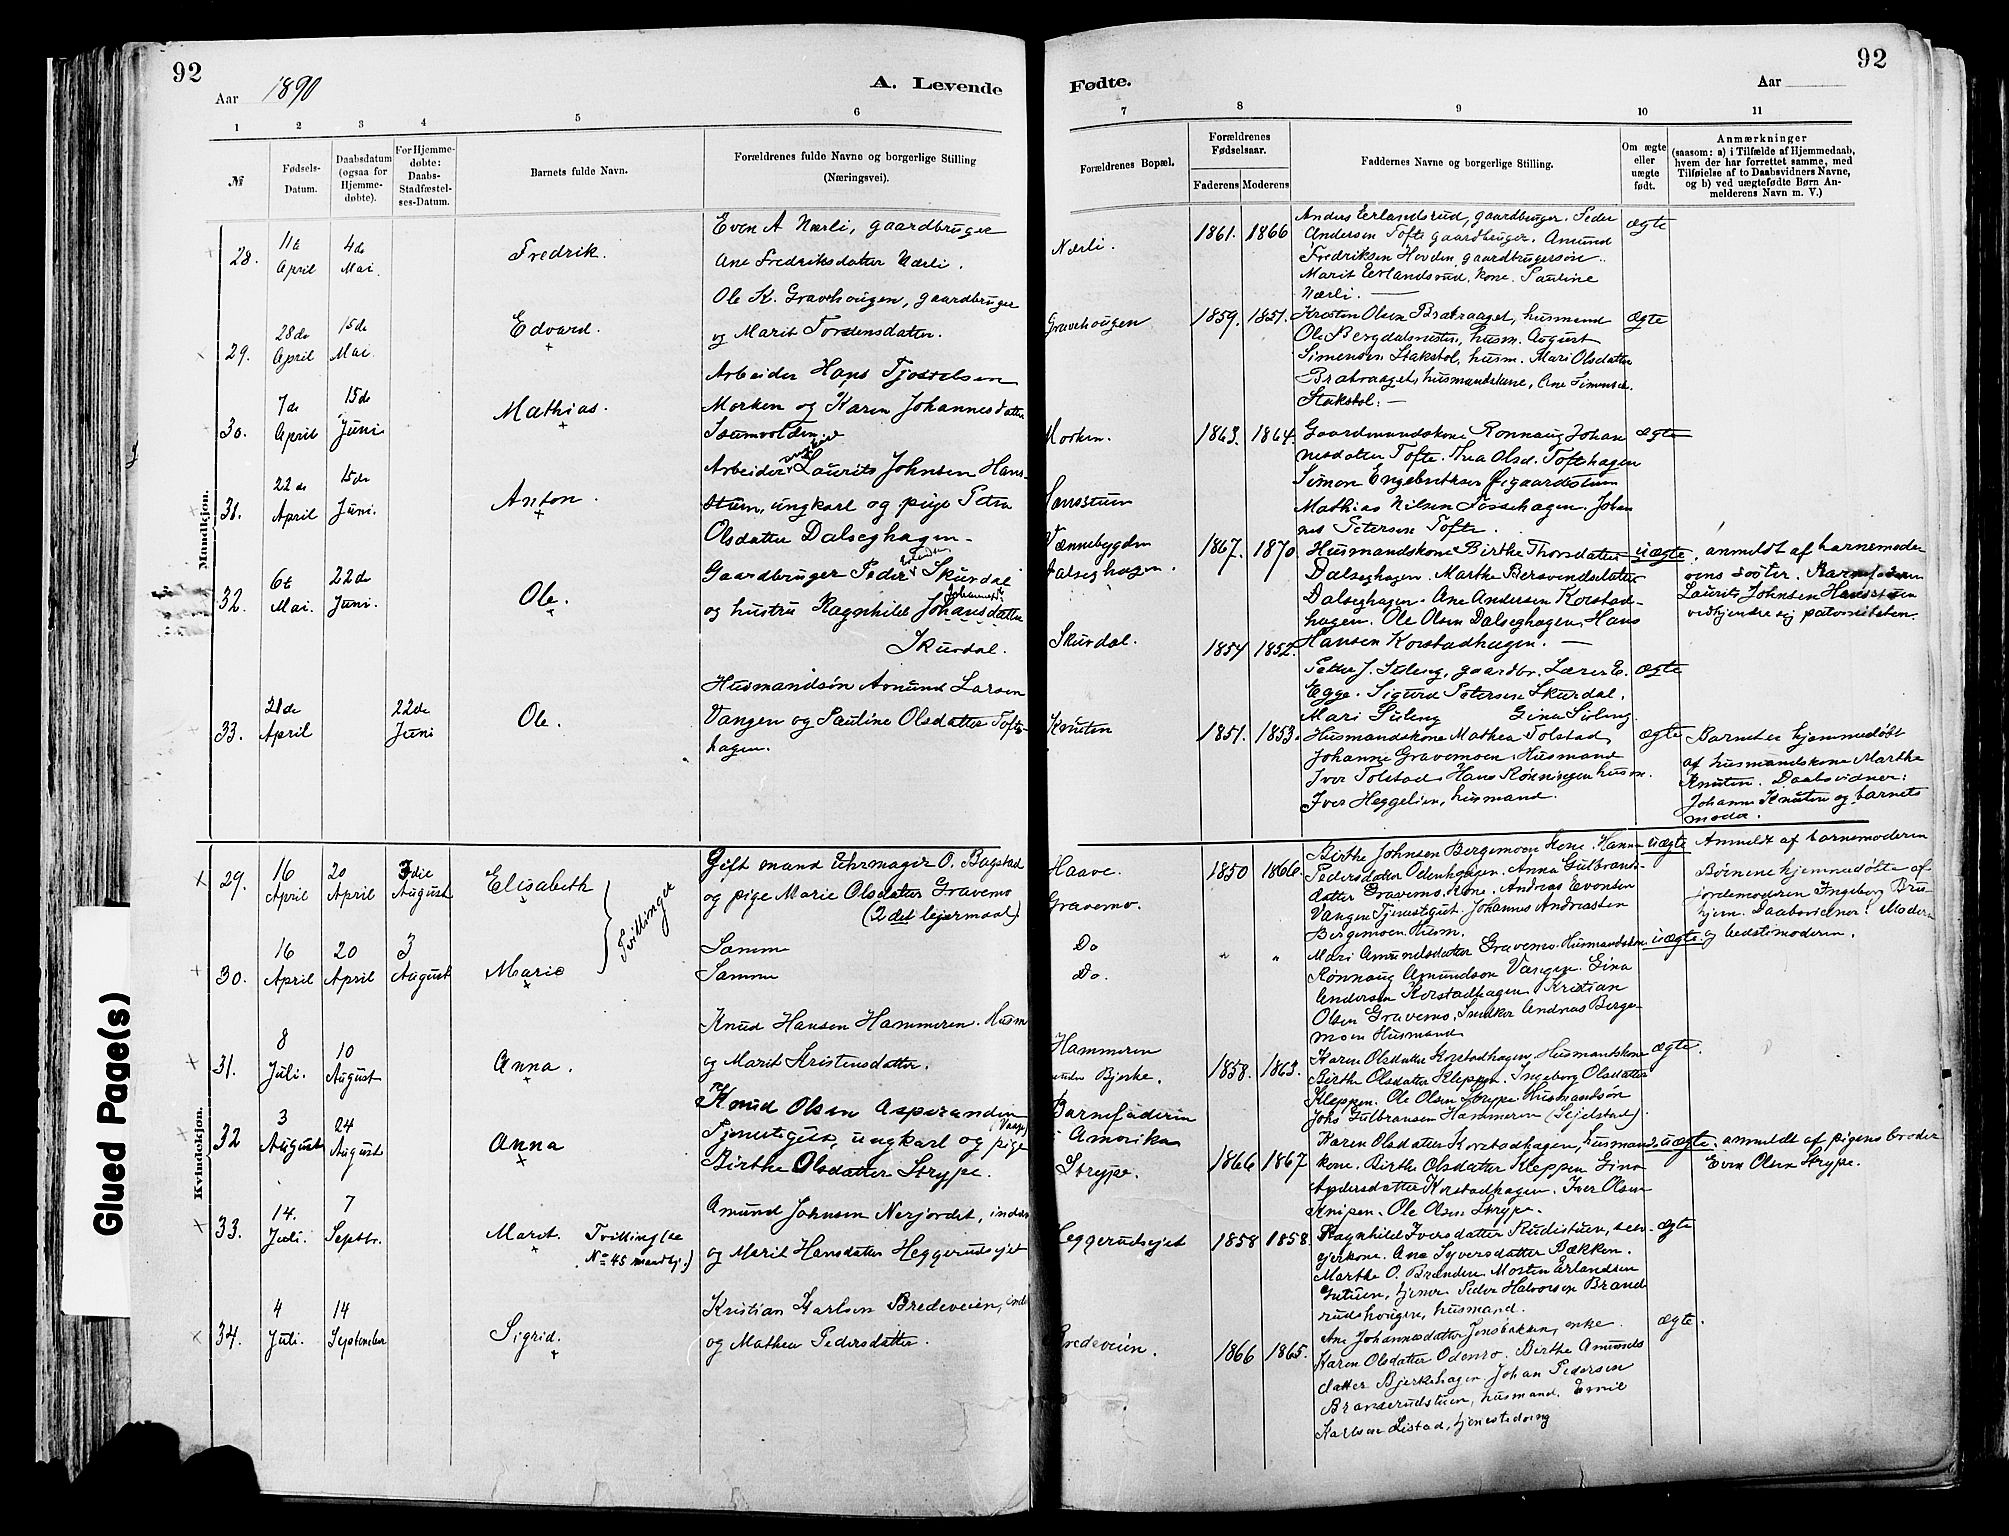 92
Aar 1890
A. Levende
1 2 3 4 5 6
№
Fødsels-
Datum.
Daabsdatum
(ogsaa for
Hjemme-
døbte).
For Hjemme-
døbte:
Daabs-
Stadfæstel-
ses-Datum.
Barnets fulde Navn.
Forældrenes fulde Navne og borgerlige Stilling
(Næringsvei).
Mandkjøn.
28. 11te April 4de Mai. Fredrik.
Even A Nærli, gaardbruger
Ane Fredriksdatter Nærli.
29. 28de April 15de Mai. Edvard.
Ole K. Gravehougen, gaardbruger
og Marit Torstensdatter.
30. 7de April 15de Juni Mathias.
Arbeider Hans Tjostelsen
Morken og Karen Johannesdatter
31. 22de April 15de Juni. Anton.
Arbeider Laurits Johnsen Hans-
stuen, ungkarl og pige Petra
Olsdatter Dalseghagen
32. 6te Mai. 22de Juni. Ole.
Gaardbruger Peder Skurdal
og hustru Ragnhild Johansdatter
Johannesd.
Skurdal.
33. 28de April 22de Juni Ole.
Husmandsøn Amund Larsen
Vangen og Pauline Olsdatter Tofte-
hagen.
Kvindekjøn.
29. 16 April 20 April 3die August Elisabeth
Gift mand Uhrmager O. Bagstad
og pige Marie Olsdatter Gravemo
(2det leiermaal)
Tvillinger
30. 16 April 20 April 3 August Marie
Samme
Samme
31. 8 Juli. 10 August Anna.
Knud Hansen Hammeren. Husm
og Marit Kristensdatter.
32 3 August 24 August Anna
Knud Olsen Asperanden
Tjenestegut, ungkarl og pige
Birthe Olsdatter Strype.
33. 14. Juli. 7 Septbr. Marit. Tvilling (se
No 45 mandkj.)
Amund Johnsen Nerjordet, inders
og Marit Hansdatter Heggerudsejet
34. 4 Juli. 14 September Sigrid.
Kristian Karlsen Bredeveien, ind
og Mathea Pedersdatter.
Glued Page(s)
92
Fødte.
Aar
7 8 9 10 11
Forældrenes Bopæl.
Forældrenes
Fødselsaar.
Faderens Moderens
Faddernes Navne og borgerlige Stilling.
Om ægte
eller
uægte
født.
Anmærkninger
(saasom: a) i Tilfælde af Hjemmedaab,
hvem der har forrettet samme, med
Tilføielse af to Daabsvidners Navne,
og b) ved uægtefødte Børn An-
melderens Navn m. V.)
Nærli. 1861. 1866
Anders Erlandsrud, gaardbruger. Peder ægte
Andersen Tofte gaardbruger. Amund
Fredriksen Hovden, gaardbrugersøn.
Marit Erlandsrud, kone. Pauline
Nærli.
Gravehougen 1859. 1851.
Karsten Olsen Bratraaget, husmand ægte
Ole Bergdalsnusten, husm. August
Simensen Stakstol, husm. Mari Olsdatter
Bratraaget, husmandskone, Ane Simensd.
Stakstol:
Morken. 1863. 1864.
Gaardmandskone Rønnaug Johan ægte
nesdatter Tofte. Thea Olsd. Toftehagen
Simon Engebretsen Øigaardstuen
Mathias Nilsen Fossehagen. Johan
nes Petersen Tofte.
Hansstuen
Vennebygden
Dalseghagen. 1867. 1870
Husmandskone Birthe Thorsdatter uægte. anmeldt af barnemoder
Dalseghagen. Marthe Bersvendsdatter ens søster. Barnefaderen
Dalseghagen. Ane Andersen Korstad- Laurits Johnsen Hansstuen
hagen. Ole Olsen Dalseghagen, Hans vedkjender sig paterniteten.
Hansen Korstadhagen.
Skurdal. 1854 1852.
Petter J. Suleng, gaardbr. Lærer E. ægte
Egge. Sigurd Petersen Skurdal.
Mari Suleng Gina Suleng.
Knuten 1851. 1853.
Husmandskone Mathea Tolstad ægte Barnet er hjemmedøbt
Johanne Gravemoen. Husmand af husmandskone Marthe
Iver Tolstad. Hans Rønningen husm. Knuten. Daabsvidner:
Iver Heggelien, husmand. Johanne Knuten og barnets
moder.
Haave.
Gravemo. 1850 1866.
Birthe Johnsen Bergemoen Kone. Hanna uægte Anmeldt af barnemoderen
Pedersdatter Odenhagen. Anna Gulbrands- Børnene hjemmedøbte af
datter Gravemo, Kone. Andreas Evensen jordemoderen Ingeborg Bru-
Vangen Tjenestegut. Johannes Andreassen hjem. Daabsvidner: Moderen
Bergemoen Husm. og bedstemoderen.
Do
Do. " "
Mari Amundsdatter Gravemo. Husmandskon. uægte
Rønnaug Amundson Vangen. Gina
Andersen Korstadhagen. Kristian
Olsen Gravemo. Snedker Andreas Berge
moen Husmand
Hammeren
under Bjerke. 1858. 1863.
Karen Olsdatter Korstadhagen, Husmandskone ægte.
Birthe Olsdatter Kleppen. Ingeborg Olsdatter
Kleppen. Ole Olsen Strype. Husmandsøn
Johs Gulbransen Hammeren (Sejelstad).
Barnefaderen
i Amerika
Strype. 1866 1867
Karen Olsdatter Korstadhagen, husmands uægte. anmeldt af pigens broder
kone. Birthe Olsdatter Kleppen Gina Even Olsen Strype.
Andersdatter Korstadhagen. Iver Olsen
Knipen. Ole Olsen Strype.
Heggerudsejet 1858 1858.
Ragnhild Iversdatter Rudistuen, selv- ægte
ejerkone. Ane Syversdatter Bækken.
Marthe O. Brenden. Morten Erlandsen
Intuen, tjener. Peder Halvorsen Brand
rudshougen, husmand.
Bredeveien. 1866 1865.
Ane Johannesdatter Jonsbakken, enke. ægte.
Karen Olsdatter Odenro. Birthe Amunds
datter Bjerkehagen. Johan Pedersen
Branserudstuen, husmand. Emil
Karlsen Listad, tjenestedreng